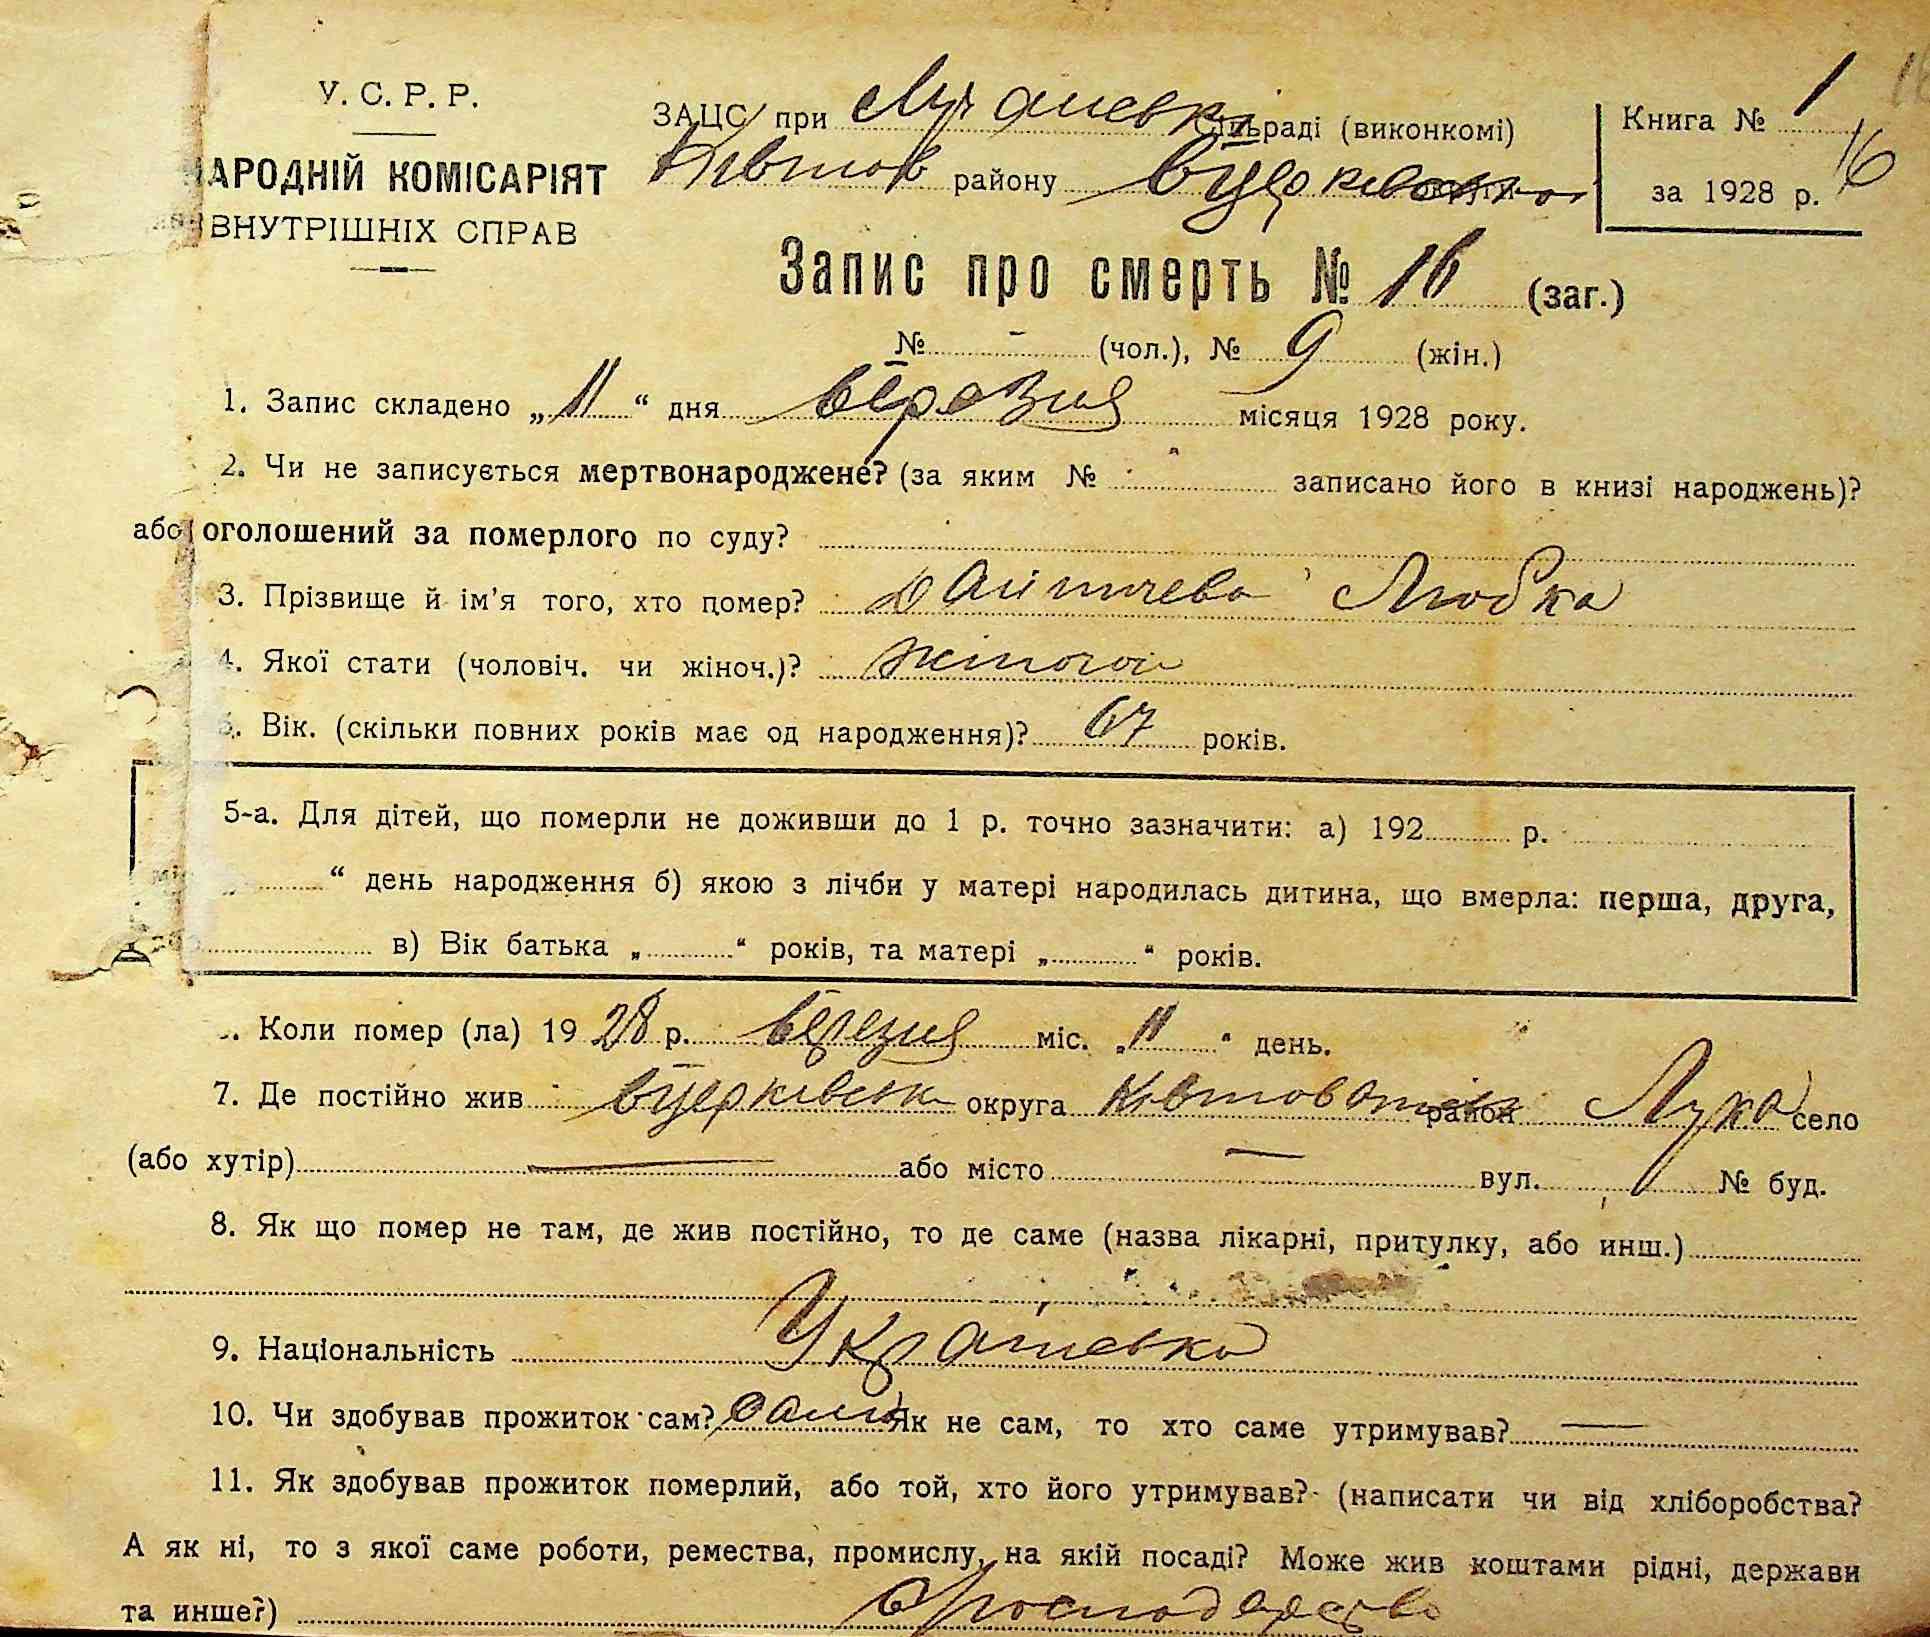 У. С. Р. Р.
НАРОДНІЙ КОМІСАРІЯТ
ВНУТРІШНІХ СПРАВ
ЗАЦС при Лучанськ Сільраді (виконкомі)
району Бцерківської
Книга № 1
за 1928 р.
16
Запис про смерть № 16 (заг.)
№ - (чол.), № 9 (жін.)
1. Запис складено „11“ дня березня місяця 1928 року.
2. Чи не записується мертвонароджене? (за яким № записано його в книзі народжень)?
або оголошений за померлого по суду?
3. Прізвище й ім'я того, хто помер? Любка
4. Якої стати (чоловіч. чи жіноч.)? жіночої
5. Вік. (скільки повних років має од народження)? 67 років.
5-а. Для дітей, що померли не доживши до 1 р. точно зазначити: а) 192 р.
“ день народження б) якою з лічби у матері народилась дитина, що вмерла: перша, друга,
в) Вік батька „ “ років, та матері „ “ років.
. Коли помер (ла) 1928 р. березня міс. „11“ день.
7. Де постійно жив Бцерківськ округа район Лука село
(або хутір) — або місто — вул. № буд.
8. Як що помер не там, де жив постійно, то де саме (назва лікарні, притулку, або инш.)
9. Національність Українська
10. Чи здобував прожиток сам? сама Як не сам, то хто саме утримував? —
11. Як здобував прожиток померлий, або той, хто його утримував? (написати чи від хліборобства?
А як ні, то з якої саме роботи, ремества, промислу, на якій посаді? Може жив коштами рідні, держави
та инше?) Господарство